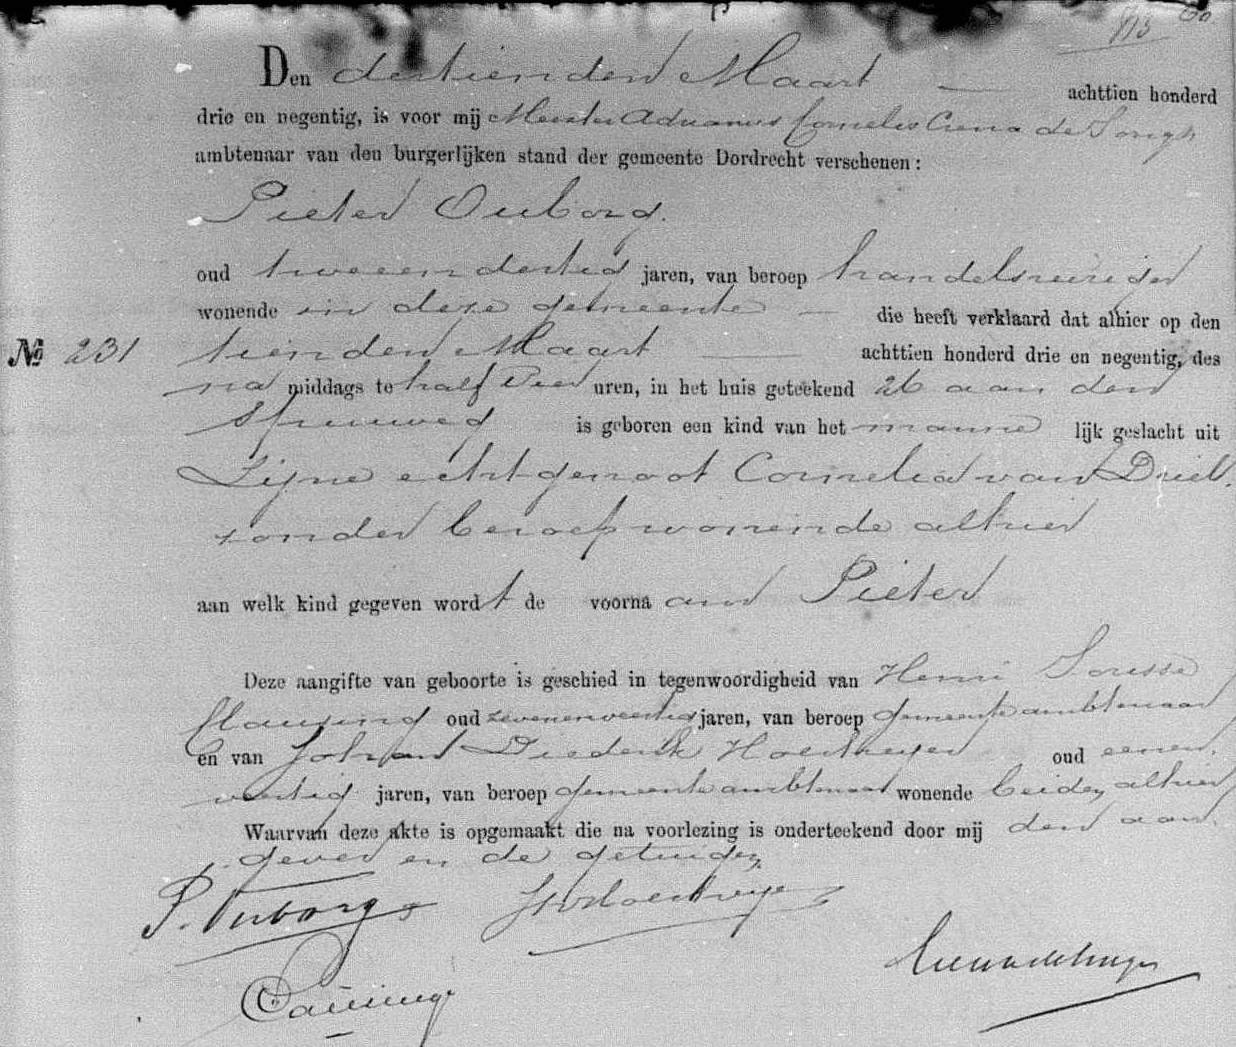 Den dertienden Maart achttien honderd
drie en negentig, is voor mij Meester Adrianus Cornelis Crena de Iongh
ambtenaar van den burgerlijken stand der gemeente Dordrecht verschenen:
Pieter Ouborg.
oud tweeendertig jaren, van beroep handelsreiziger
wonende in deze gemeente die heeft verklaard dat alhier op den
№ 231 tienden Maart achttien honderd drie en negentig, des
na middags te half vier uren, in het huis geteekend 26 aan den
Spuiweg is geboren een kind van het manne lijk geslacht uit
Zijne echtgenoot Cornelia van Driel,
zonder beroep wonende alhier
aan welk kind gegeven wordt de voorna am Pieter
Deze aangifte van geboorte is geschied in tegenwoordigheid van Henri
Clausing oud zevenenveertig jaren, van beroep gemeente ambtenaar
en van Johan Diederik oud eenen
veertig jaren, van beroep gemeente ambtenaar wonende beiden alhier
Waarvan deze akte is opgemaakt die na voorlezing is onderteekend door mij den aan
gever en de getuigen.
P. Ouborg
Clausing